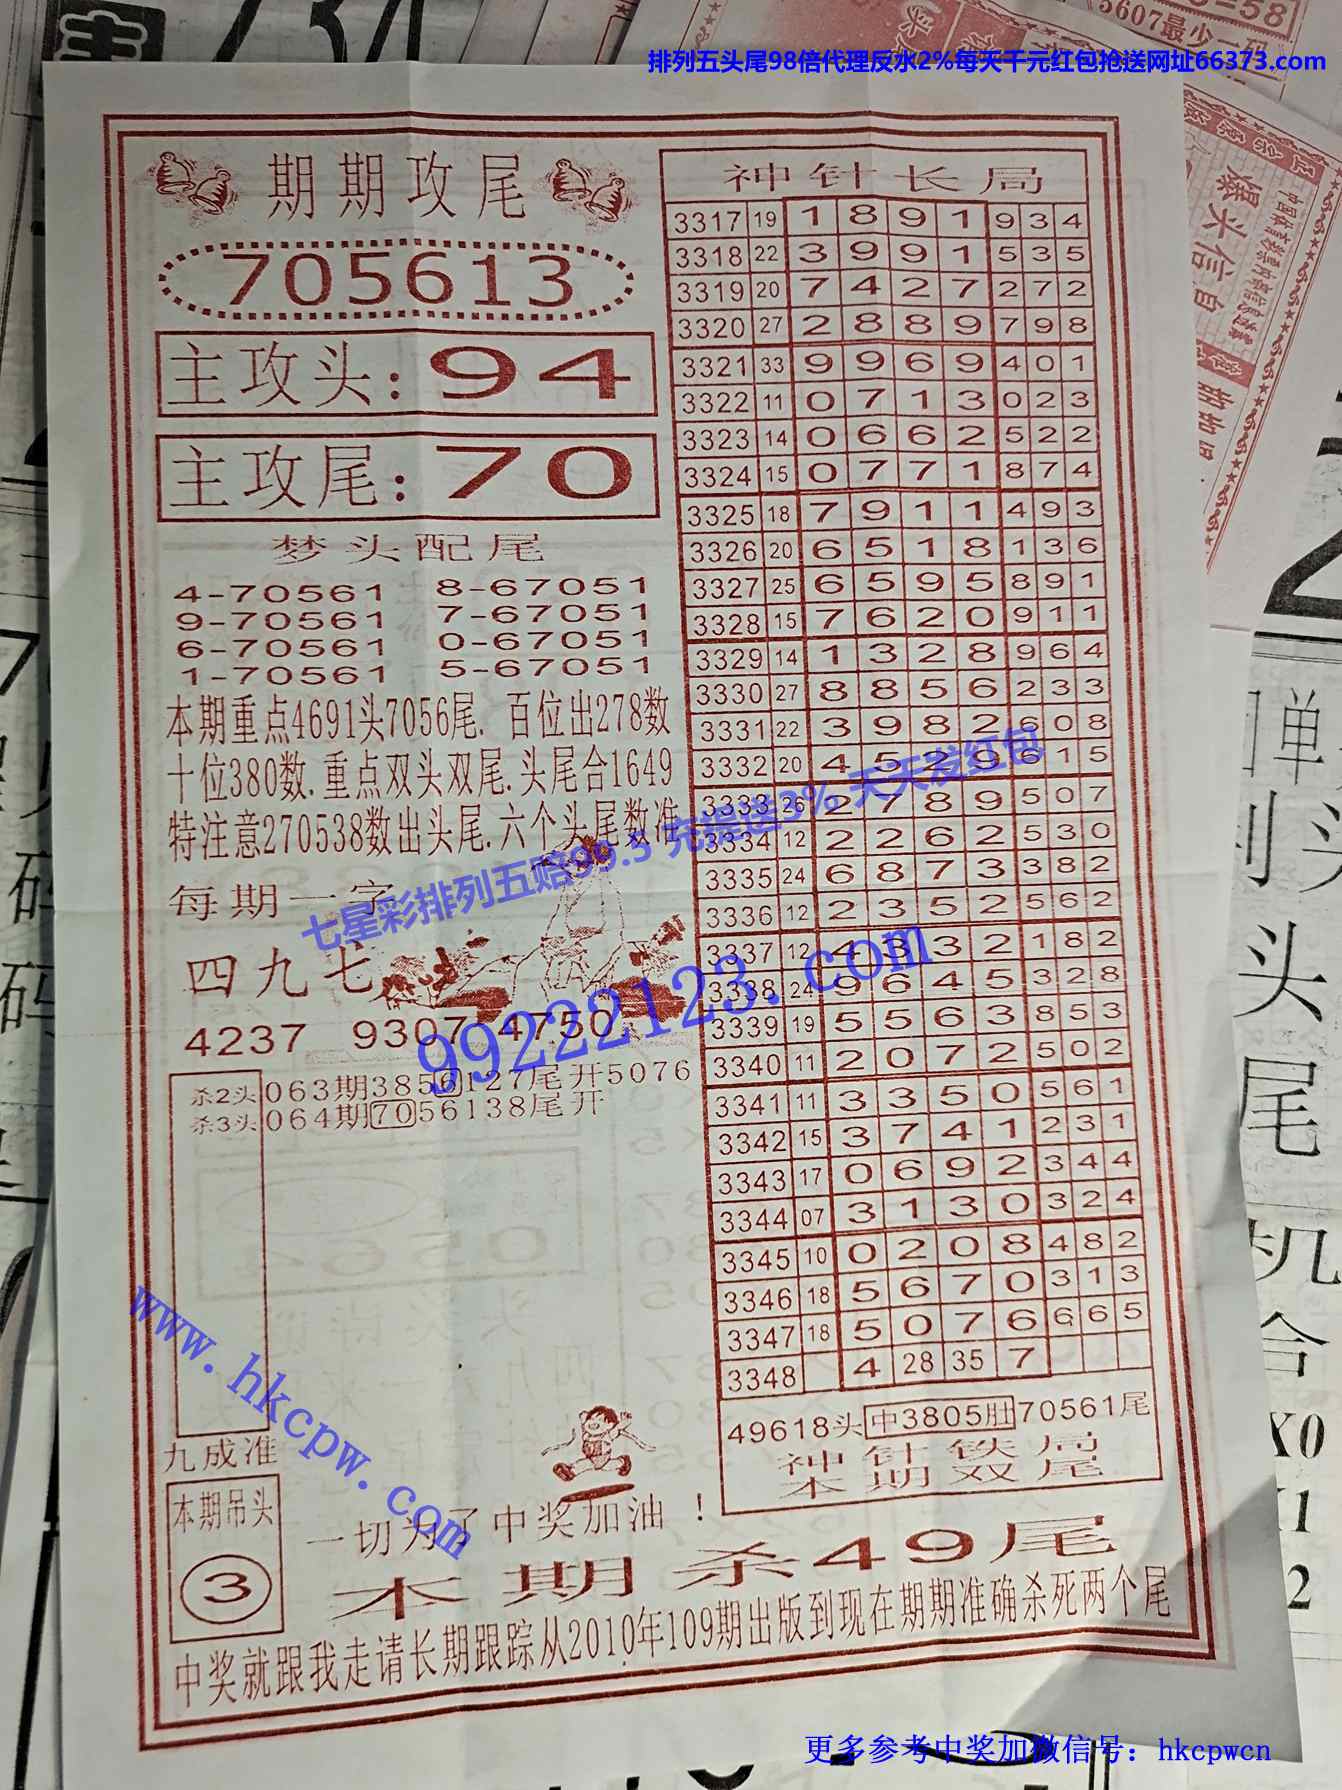 排列五头尾98倍代理反水2%每天千元红包抢送网址66373.com
期期攻尾
705613
主攻头:94
主攻尾:70
梦头配尾
4-70561 8-67051
9-70561 7-67051
6-70561 0-67051
1-70561 5-67051
本期重点4691头7056尾.百位出278数
十位380数.重点双头双尾.头尾合1649
特注意270538数出头尾.六个头尾数准
每期一字
四九七
4237 9307 4750
杀2头 063期3856127尾开5076
杀3头 064期7056138尾开
九成准
本期吊头
3
神针长局
3317 19 1 8 9 1 9 3 4
3318 22 3 9 9 1 5 3 5
3319 20 7 4 2 7 2 7 2
3320 27 2 8 8 9 7 9 8
3321 33 9 9 6 9 4 0 1
3322 11 0 7 1 3 0 2 3
3323 14 0 6 6 2 5 2 2
3324 15 0 7 7 1 8 7 4
3325 18 7 9 1 1 4 9 3
3326 20 6 5 1 8 1 3 6
3327 25 6 5 9 5 8 9 1
3328 15 7 6 2 0 9 1 1
3329 14 1 3 2 8 9 6 4
3330 27 8 8 5 6 2 3 3
3331 22 3 9 8 2 6 0 8
3332 20 4 5 2 9 6 1 5
3333 26 2 7 8 9 5 0 7
3334 12 2 2 6 2 5 3 0
3335 24 6 8 7 3 3 8 2
3336 12 2 3 5 2 5 6 2
3337 12 4 3 3 2 1 8 2
3338 24 9 6 4 5 3 2 8
3339 19 5 5 6 3 8 5 3
3340 11 2 0 7 2 5 0 2
3341 11 3 3 5 0 5 6 1
3342 15 3 7 4 1 2 3 1
3343 17 0 6 9 2 3 4 4
3344 07 3 1 3 0 3 2 4
3345 10 0 2 0 8 4 8 2
3346 18 5 6 7 0 3 1 3
3347 18 5 0 7 6 6 6 5
3348 4 28 35 7
49618头 中3805肚 70561尾
神针铁局
本期双尾
一切为了中奖加油!
本期杀49尾
中奖就跟我走请长期跟踪从2010年109期出版到现在期期准确杀死两个尾
七星彩排列五赔99.5 充提送3% 天天发红包
99222123.com
www.hkcpw.com
更多参考中奖加微信号：hkcpwcn
5607最少一码
爆头信自
单
头
头
尾
机
合